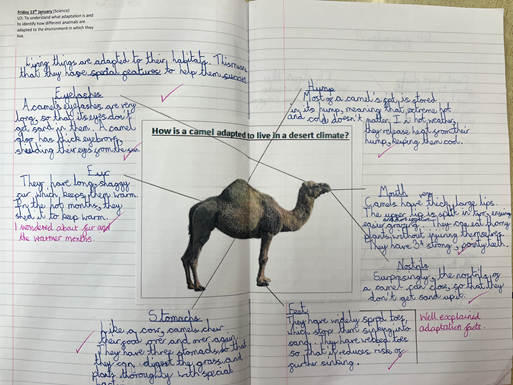 Friday 13th January (Science)
LO: To understand what adaptation is and
to identify how different animals are
adapted to the environment in which they
live.
Living things are adapted to their habitats. This means
that they have special features to help them succeed.
Eyelashes
A camels eyelashes are very
long, so that its eyes don't
get sand in them. A camel
also has thick eyebrows,
shielding their eyes from the sun.
How is a camel adapted to live in a desert climate?
Hump
Most of a camel's fat is stored
in its hump, meaning that extreme hot
and cold doesn't matter. In hot weather,
they release heat from their
hump, keeping them cool.
Fur
They have long, shaggy
fur which keeps them warm.
In the hot months, they
shed it to keep warm.
I wondered about fur and
the warmer months.
Mouth
Camels have thick, very large lips.
The upper lip is split in two, ensuring
easier grazing. They can eat thorny
plants without injuring themselves.
They have 34 strong, teeth.
Nostrils
Surprisingly, the nostrils of
a camel can close, so that they
don't get sand up it.
Stomachs
Like a cow, camels chew
their food over and over again.
They have three stomachs so that
they can digest the grass and
plants thoroughly with special
Feet
They have widely spread toes
which stop them sinking into
sand. They have webbed toes
so that it reduces risk of
further sinking.
Well explained
adaptation facts.